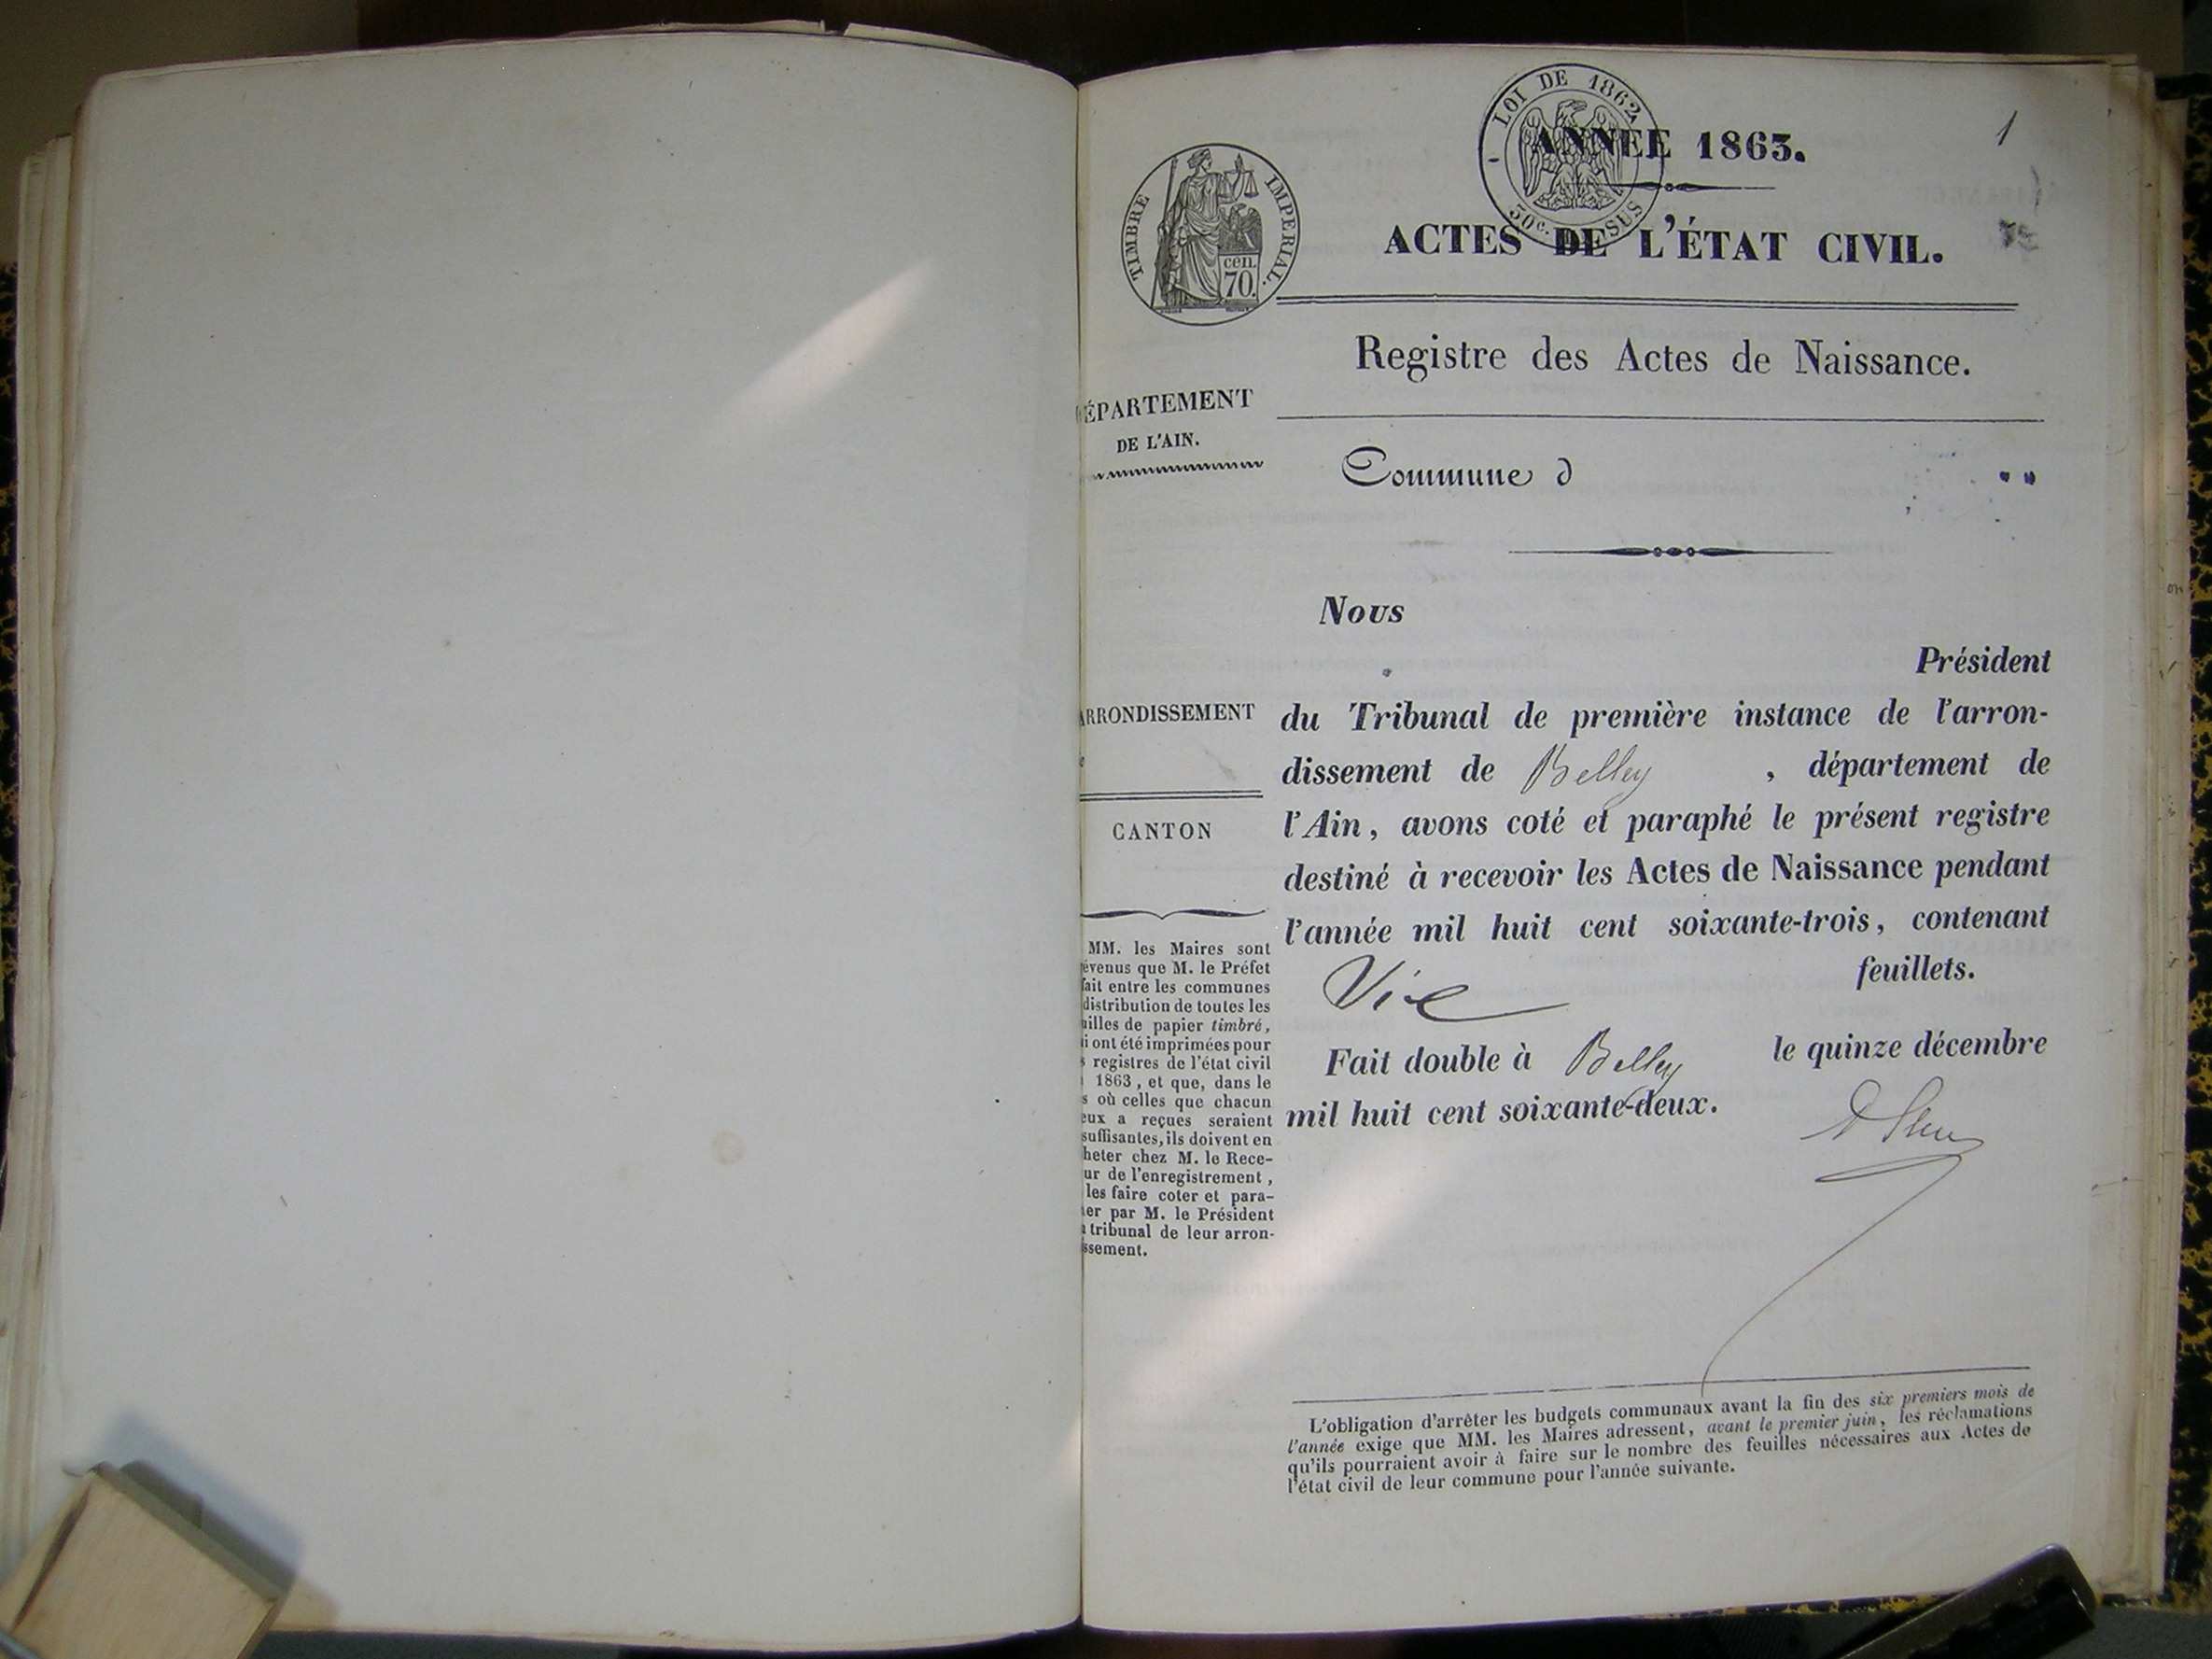 LOI DE 1862
50c. EN SUS
ANNÉE 1863.
1
TIMBRE IMPERIAL.
cen.
70.
ACTES DE L'ÉTAT CIVIL.
Registre des Actes de Naissance.
ÉPARTEMENT
DE L'AIN.
Commune d
Nous
Président
ARRONDISSEMENT
du Tribunal de première instance de l'arron-
dissement de Belley , département de
l'Ain, avons coté et paraphé le présent registre
destiné à recevoir les Actes de Naissance pendant
l'année mil huit cent soixante-trois, contenant
feuillets.
Fait double à Belley le quinze décembre
mil huit cent soixante-deux.
CANTON
MM. les Maires sont
évenus que M. le Préfet
fait entre les communes
distribution de toutes les
uilles de papier timbré,
i ont été imprimées pour
s registres de l'état civil
1863, et que, dans le
s où celles que chacun
eux a reçues seraient
suffisantes, ils doivent en
heter chez M. le Rece-
ur de l'enregistrement,
les faire coter et para-
er par M. le Président
u tribunal de leur arron-
ssement.
L'obligation d'arrêter les budgets communaux avant la fin des six premiers mois de
l'année exige que MM. les Maires adressent, avant le premier juin, les réclamations
qu'ils pourraient avoir à faire sur le nombre des feuilles nécessaires aux Actes de
l'état civil de leur commune pour l'année suivante.